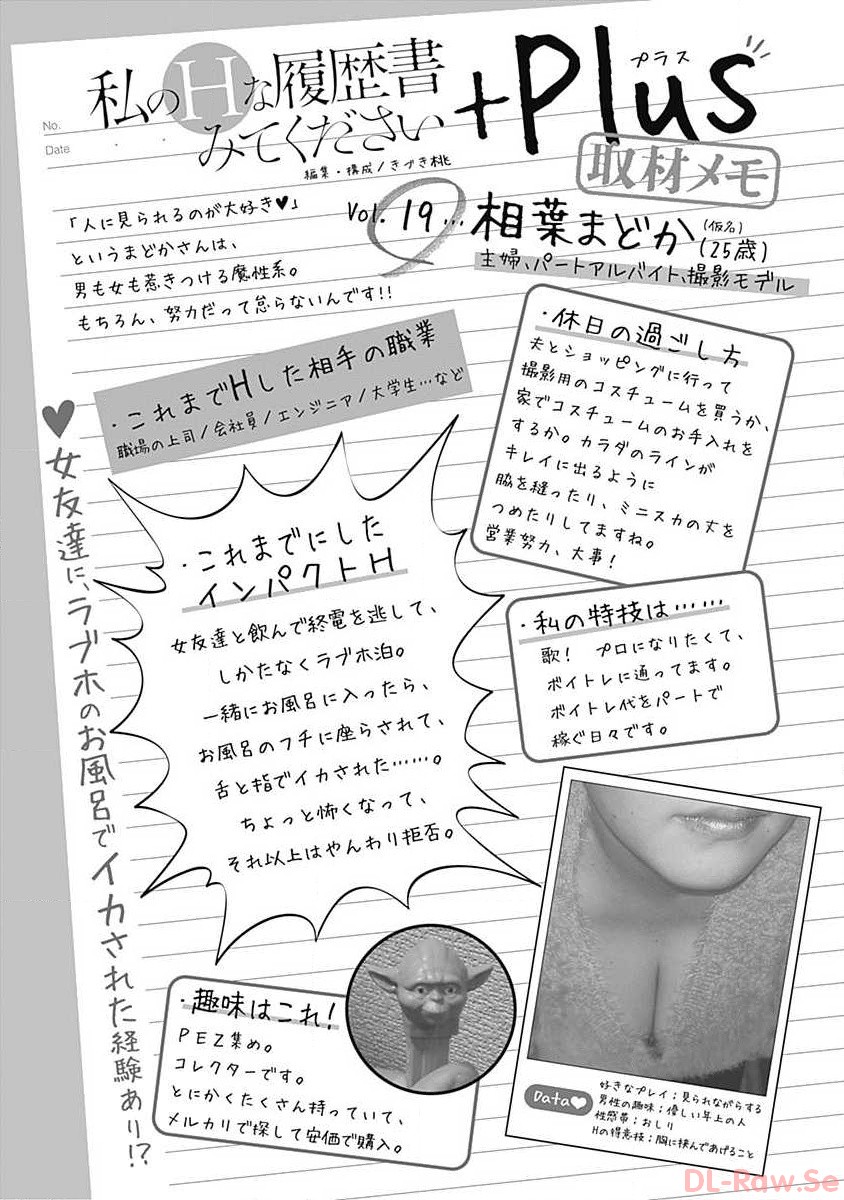 No.
Date
私のHな履歴書
みてください
+Plus
プラス
取材メモ
編集・構成/きづき桃
「人に見られるのが大好き♥」
というまどかさんは、
男も女も惹きつける魔性系。
もちろん、努力だって怠らないんです!!
Vol. 19…相葉まどか(仮名)(25歳)
主婦、パートアルバイト、撮影モデル
・これまでHした相手の職業
職場の上司/会社員/エンジニア/大学生…など
・休日の過ごし方
夫とショッピングに行って
撮影用のコスチュームを買うか、
家でコスチュームのお手入れを
するか。カラダのラインが
キレイに出るように
脇を縫ったり、ミニスカの丈を
つめたりしてますね。
営業努力、大事!
♥女友達に、ラブホのお風呂でイカされた経験あり!?
・これまでにした
インパクトH
女友達と飲んで終電を逃して、
しかたなくラブホ泊。
一緒にお風呂に入ったら、
お風呂のフチに座らされて、
舌と指でイカされた……。
ちょっと怖くなって、
それ以上はやんわり拒否。
・私の特技は……
歌! プロになりたくて、
ボイトレに通ってます。
ボイトレ代をパートで
稼ぐ日々です。
・趣味はこれ!
PEZ集め。
コレクターです。
とにかくたくさん持っていて、
メルカリで探して安価で購入。
Data♥
好きなプレイ;見られながらする
男性の趣味;優しい年上の人
性感帯;おしり
Hの得意技;胸に挟んであげること
DL-Raw.Se